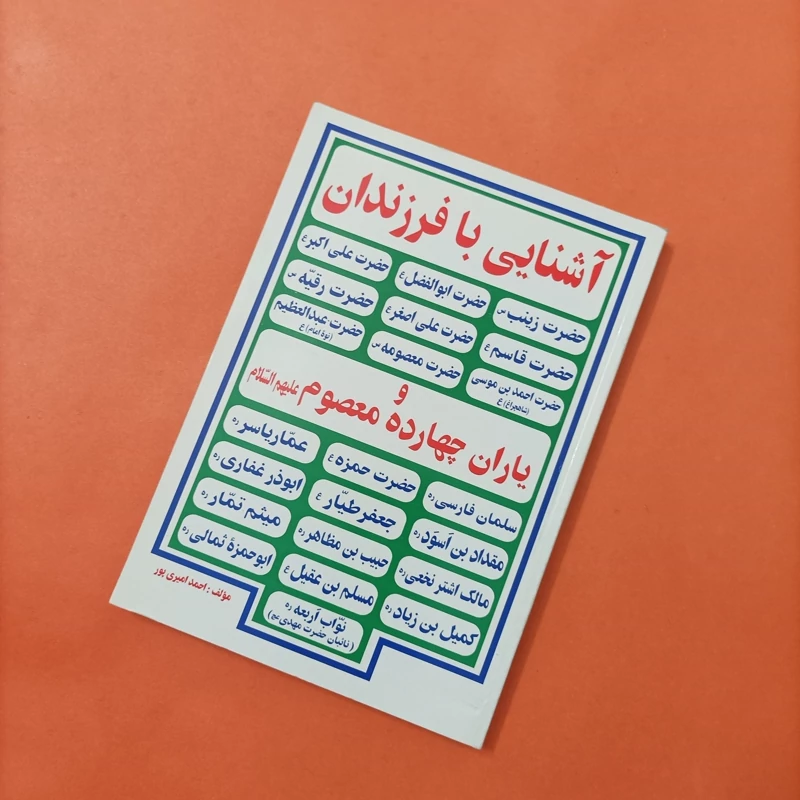 آشنایی با فرزندان
حضرت زینب س
حضرت ابوالفضل ع
حضرت علی اکبر ع
حضرت قاسم ع
حضرت علی اصغر ع
حضرت رقیّه س
حضرت احمد بن موسی
(شاهچراغ) ع
حضرت معصومه س
حضرت عبدالعظیم
(نوهٔ امام) ع
و
یاران چهارده معصوم علیهم السّلام
سلمان فارسی ره
حضرت حمزه ع
عمّار یاسر ره
مقداد بن اَسوَد ره
جعفر طیّار ع
ابوذر غفاری ره
مالک اشتر نخعی ره
حبیب بن مظاهر ره
میثم تمّار ره
کمیل بن زیاد ره
مسلم بن عقیل ع
ابوحمزهٔ ثمالی ره
نوّاب اَربعه ره
(نائبان حضرت مهدی عج)
مؤلف : احمد امیری پور